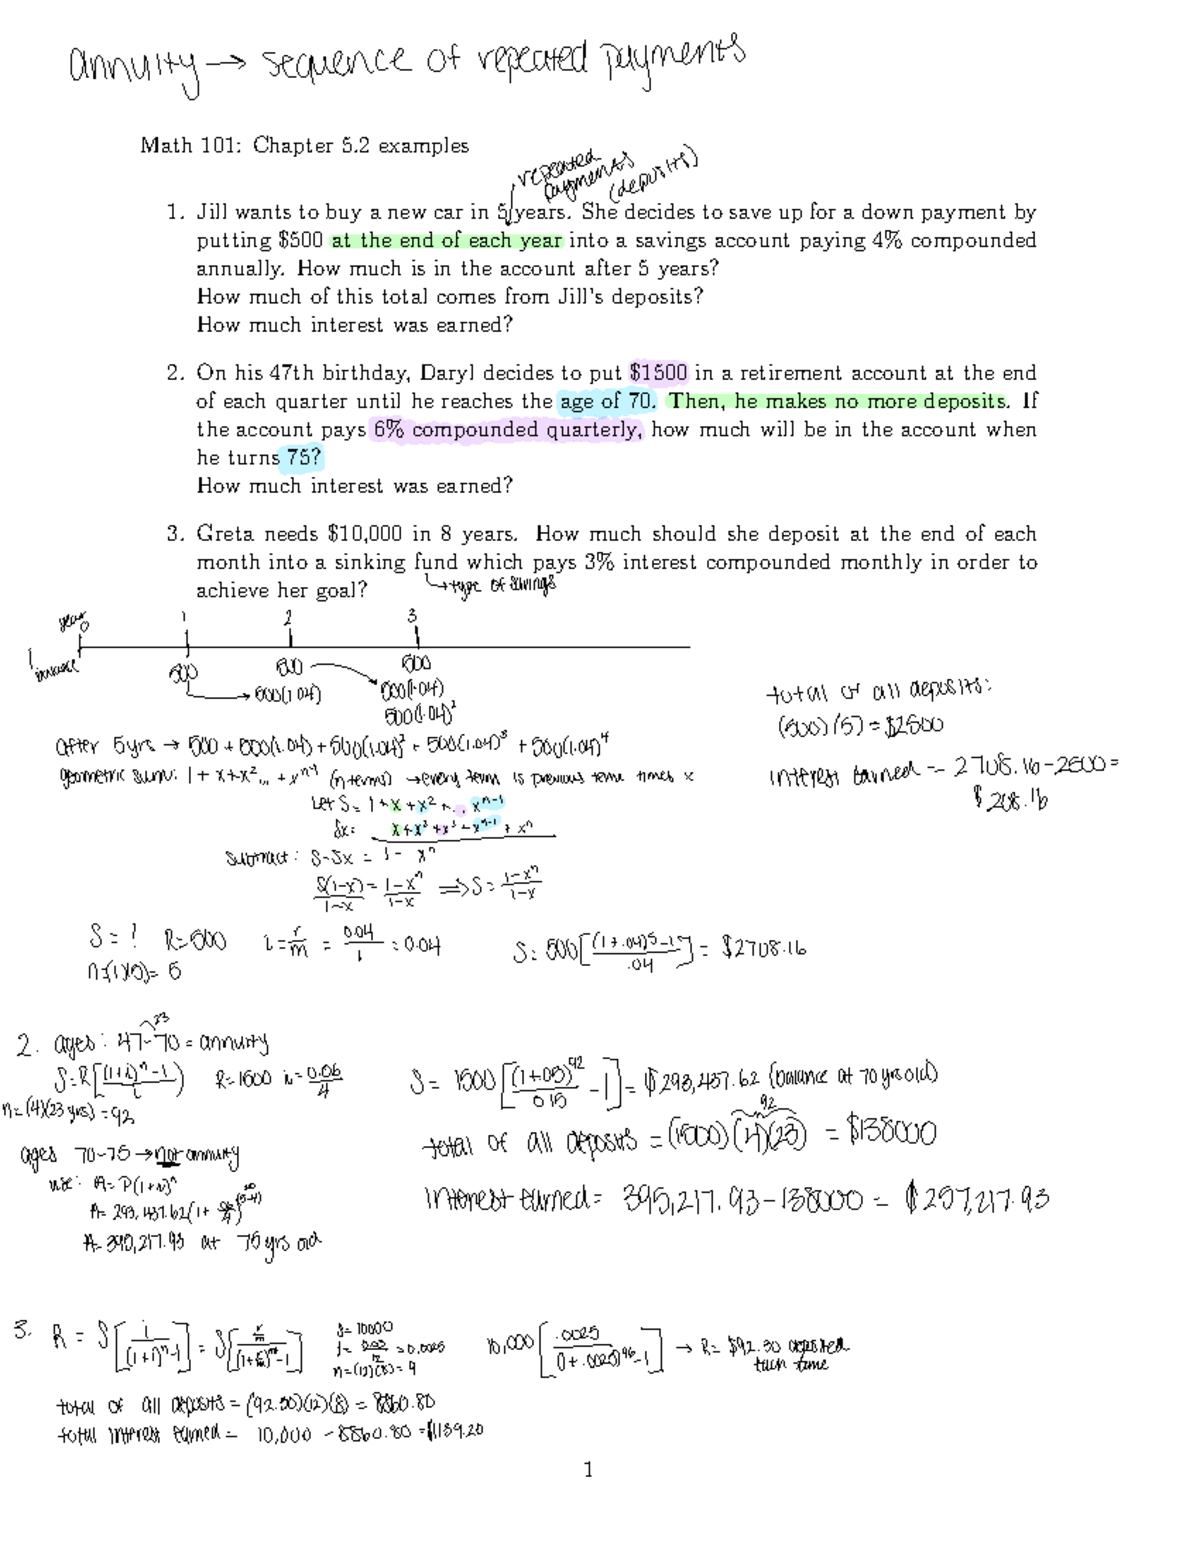 annuity → sequence of repeated payments
Math 101: Chapter 5.2 examples
repeated
payments
(deposits)
1. Jill wants to buy a new car in 5 years. She decides to save up for a down payment by
putting $500 at the end of each year into a savings account paying 4% compounded
annually. How much is in the account after 5 years?
How much of this total comes from Jill's deposits?
How much interest was earned?
2. On his 47th birthday, Daryl decides to put $1500 in a retirement account at the end
of each quarter until he reaches the age of 70. Then, he makes no more deposits. If
the account pays 6% compounded quarterly, how much will be in the account when
he turns 75?
How much interest was earned?
3. Greta needs $10,000 in 8 years. How much should she deposit at the end of each
month into a sinking fund which pays 3% interest compounded monthly in order to
achieve her goal?
↳ type of savings
year 0 1 2 3
500 500 500
500(1.04) 500(1.04)
500(1.04)²
total of all deposits:
(500)(5) = $2500
after 5yrs → 500 + 500(1.04) + 500(1.04)² + 500(1.04)³ + 500(1.04)⁴
geometric sum: 1 + x + x² ... + xⁿ⁻¹ (n terms) → every term is previous term times x
interest earned = 2708.16 - 2500 =
$208.16
let S = 1 + x + x² + ... xⁿ⁻¹
Sx = x + x² + x³ + xⁿ⁻¹ + xⁿ
subtract: S - Sx = 1 - xⁿ
S(1-x)/1-x = 1-xⁿ/1-x ⟹ S = 1-xⁿ/1-x
S = ? R = 500 i = r/m = 0.04/1 = 0.04
n = (1)(5) = 5
S = 500[(1+.04)5-1/.04] = $2708.16
2. ages: 47-70 = annuity
23
S = R[(1+i)ⁿ-1/i] R = 1500 i = 0.06/4
n = (4)(23 yrs) = 92
S = 1500[(1+.015)⁹²/.015 - 1] = $293,437.62 (balance at 70 yrs old)
92
total of all deposits = (1500)(4)(23) = $138000
ages 70-75 → not annuity
use: A = P(1+i)ⁿ
A = 293,437.62(1+
at 75 yrs old
interest earned = 395,217.93 - 138000 = $257,217.93
3. R = S[i/(1+i)ⁿ-1] = S
S = 10000
= 0.0025
n = (12)(8) = 9
10,000[.0025/(1+.0025)⁹⁶-1] → R = $92.30 deposited
each time
total of all deposits = (92.30)(12)(8) = 8860.80
total interest earned = 10,000 - 8860.80 = $1139.20
1